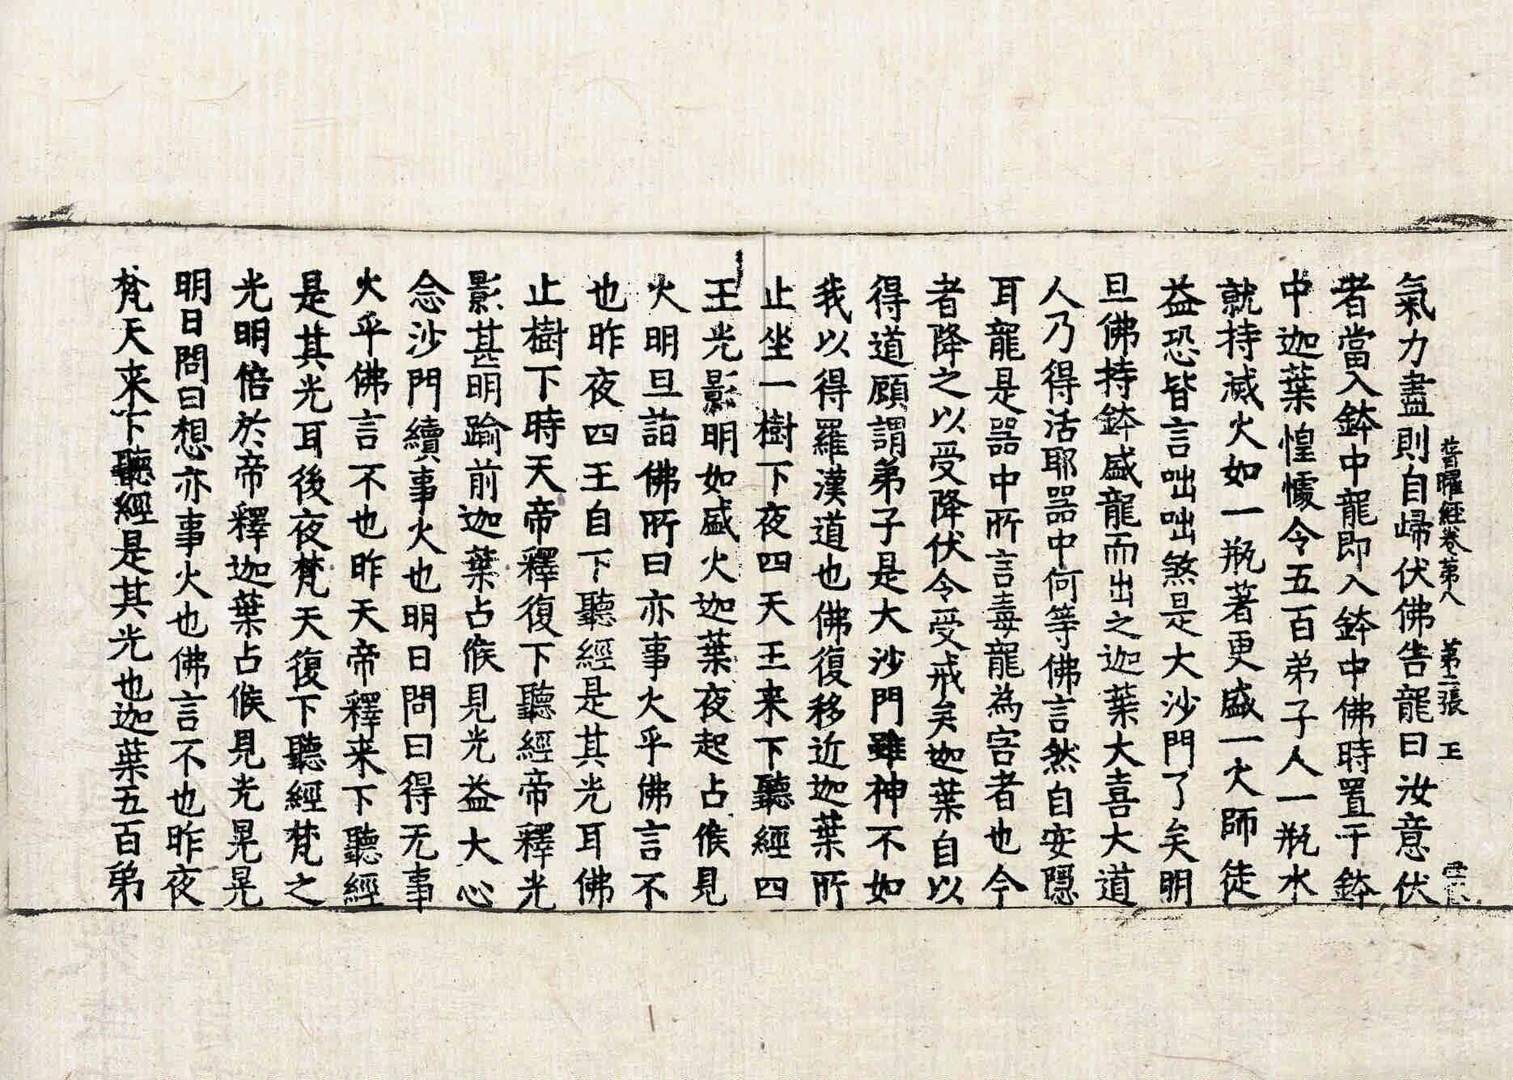 普曜經卷第八　第二張　王
氣力盡則自歸伏佛告龍曰汝意伏
者當入鉢中龍即入鉢中佛時置于鉢
中迦葉惶懅令五百弟子人一瓶水
就持滅火如一瓶著更盛一火師徒
益恐皆言咄咄煞是大沙門了矣明
旦佛持鉢盛龍而出之迦葉大喜大道
人乃得活耶器中何等佛言然自安隱
耳龍是器中所言毒龍為害者也今
者降之以受降伏令受戒矣迦葉自以
得道顧謂弟子是大沙門雖神不如
我以得羅漢道也佛復移近迦葉所
止坐一樹下夜四天王来下聽經四
王光影明如盛火迦葉夜起占候見
火明旦詣佛所曰亦事火乎佛言不
也昨夜四王自下聽經是其光耳佛
止樹下時天帝釋復下聽經帝釋光
影甚明踰前迦葉占候見光益大心
念沙門續事火也明日問曰得无事
火乎佛言不也昨天帝釋来下聽經
是其光耳後夜梵天復下聽經梵之
光明倍於帝釋迦葉占候見光晃晃
明日問曰想亦事火也佛言不也昨夜
梵天来下聽經是其光也迦葉五百弟